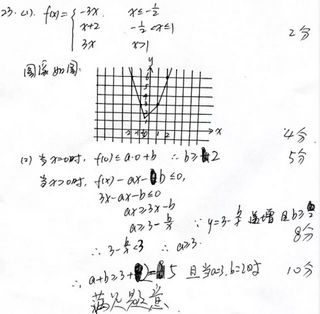 23. (1). f(x)= { -3x. x≤-1/2
x+2 -1/2<x≤1
3x x>1 2分
图像如图. y
x
4分
(2) 当x=0时, f(0)≤a·0+b ∴b≥2 5分
当x>0时, f(x)-ax-b≤0,
3x-ax-b≤0
ax≥3x-b
a≥3-b/x ∵y=3-b/x 递增且b≥
8分
∴3-b/x<3 ∴a≥3.
∴a+b≥3+2=5 且当a=3,b=2时 10分
满足题意.